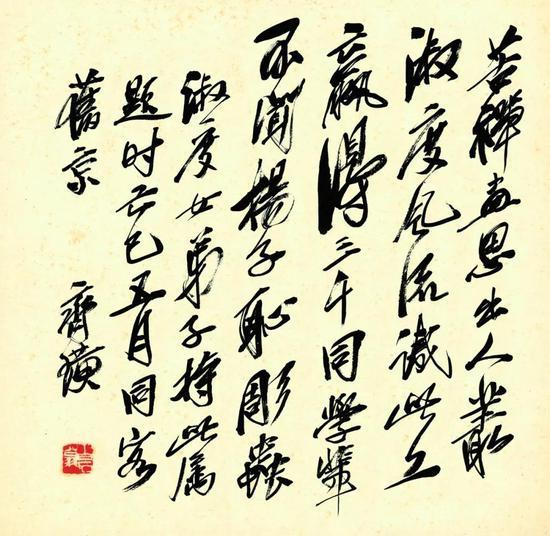 苦禪畫思出人叢
淑度風流識此工
贏得三千同學輩
不聞楊子恥彫蟲
淑度女弟子持此屬
題时己巳五月同客
舊京 齊璜